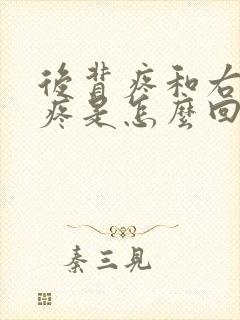 後背疼和右
疼是怎麼回
秦三見